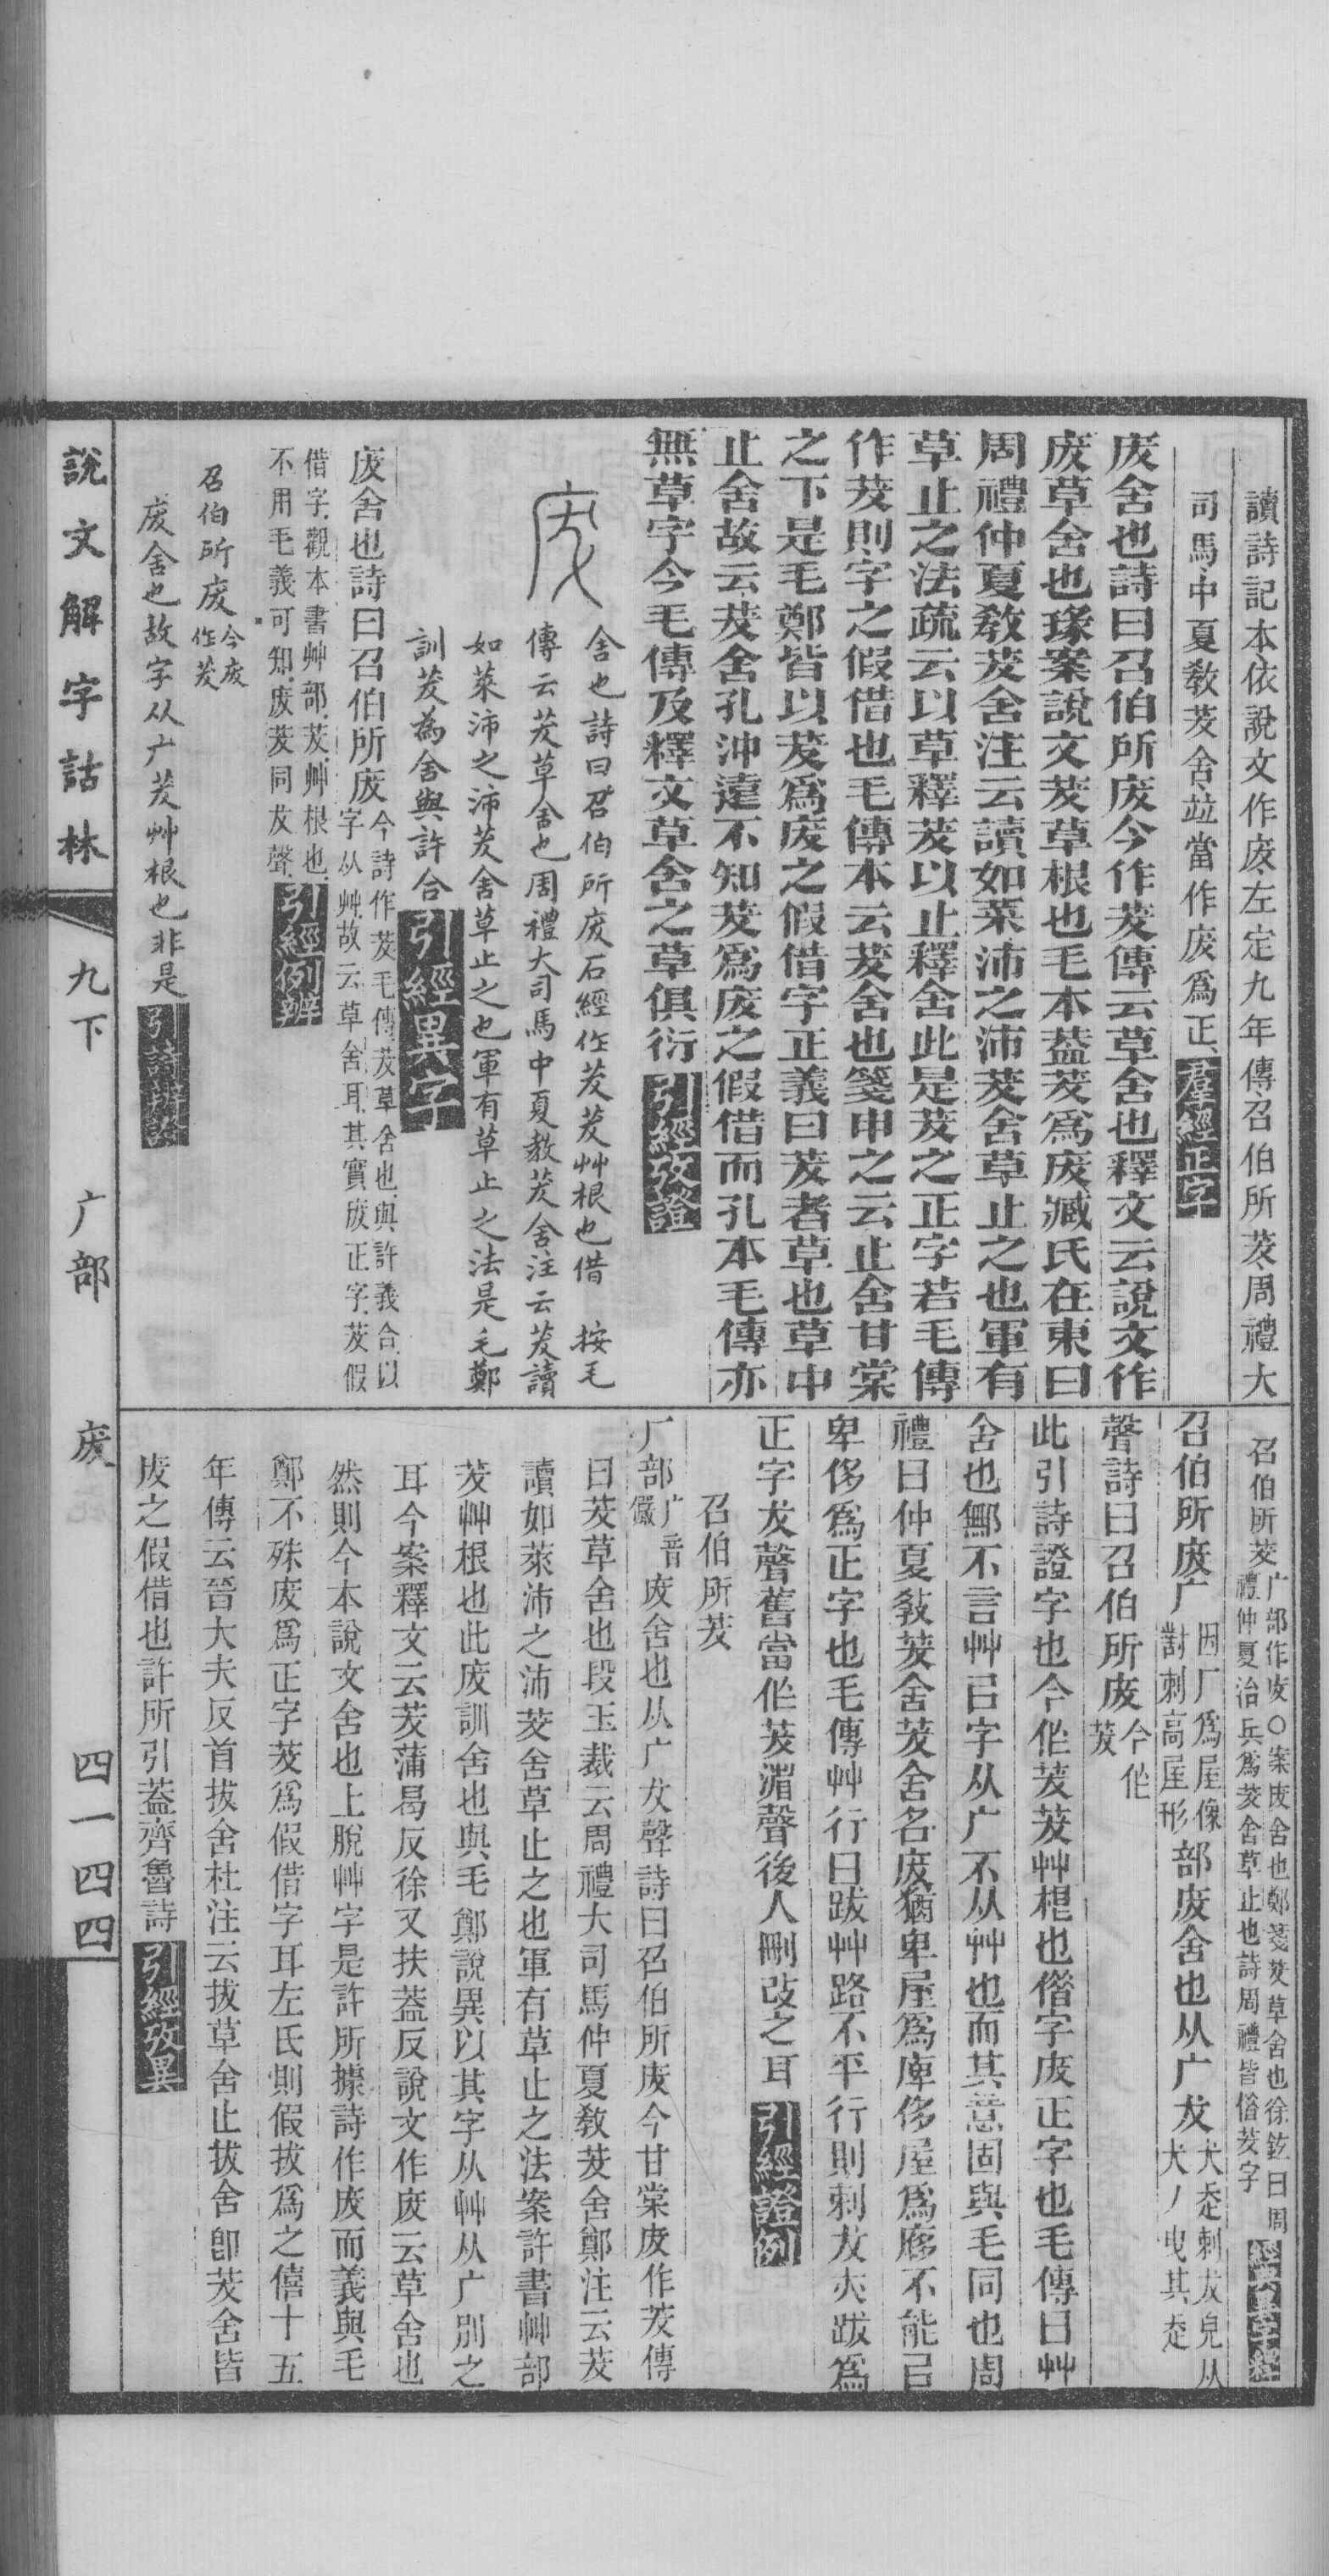 讀詩記本依說文作废左定九年傳召伯所茇周禮大
司馬中夏敎茇舍竝當作废爲正羣經正字
废舍也詩曰召伯所废今作茇傳云草舍也釋文云說文作
废草舍也瑑案說文茇草根也毛本葢茇爲废臧氏在東曰
周禮仲夏敎茇舍注云讀如萊沛之沛茇舍草止之也軍有
草止之法疏云以草釋茇以止釋舍此是茇之正字若毛傳
作茇則字之假借也毛傳本云茇舍也箋申之云止舍甘棠
之下是毛鄭皆以茇爲废之假借字正義曰茇者草也草中
止舍故云茇舍孔沖遠不知茇爲废之假借而孔本毛傳亦
無草字今毛傳及釋文草舍之草俱衍引經攷證
废
舍也詩曰召伯所废石經作茇茇艸根也借 按毛
傳云茇草舍也周禮大司馬中夏敎茇舍注云茇讀
如萊沛之沛茇舍草止之也軍有草止之法是毛鄭
訓茇為舍與許合引經異字
废舍也詩曰召伯所废今詩作茇毛傳茇草舍也與許義合以
字从艸故云草舍耳其實废正字茇假
借字觀本書艸部茇艸根也
不用毛義可知废茇同犮聲引經例辨
召伯所废今废
作茇
废舍也故字从广茇艸根也非是引詩辨證
說文解字詁林 九下 广部 废 四一四四
召伯所茇广部作废〇案废舍也鄭箋茇草舍也徐鉉曰周
禮仲夏治兵爲茇舍草止也詩周禮皆借茇字
召伯所废广因厂爲屋像
對刺高屋形部废舍也从广犮犬走刺犮皃从
犬丿曳其走
聲詩曰召伯所废今作
茇
此引詩證字也今作茇茇艸根也借字废正字也毛傳曰艸
舍也鄦不言艸㠯字从广不从艸也而其意固與毛同也周
禮曰仲夏敎茇舍茇舍名废猶卑屋爲庳侈屋爲庈不能㠯
卑侈爲正字也毛傳艸行曰跋艸路不平行則刺犮夾跋爲
正字犮聲舊當作茇湄聲後人刪改之耳引經證例
召伯所茇
厂部广音
儼废舍也从广犮聲詩曰召伯所废今甘棠废作茇傳
曰茇草舍也段玉裁云周禮大司馬仲夏敎茇舍鄭注云茇
讀如萊沛之沛茇舍草止之也軍有草止之法案許書艸部
茇艸根也此废訓舍也與毛鄭說異以其字从艸从广別之
耳今案釋文云茇蒲曷反徐又扶葢反說文作废云草舍也
然則今本說文舍也上脫艸字是許所據詩作废而義與毛
鄭不殊废爲正字茇爲假借字耳左氏則假拔爲之僖十五
年傳云晉大夫反首拔舍杜注云拔草舍止拔舍卽茇舍皆
废之假借也許所引葢齊魯詩引經攷異